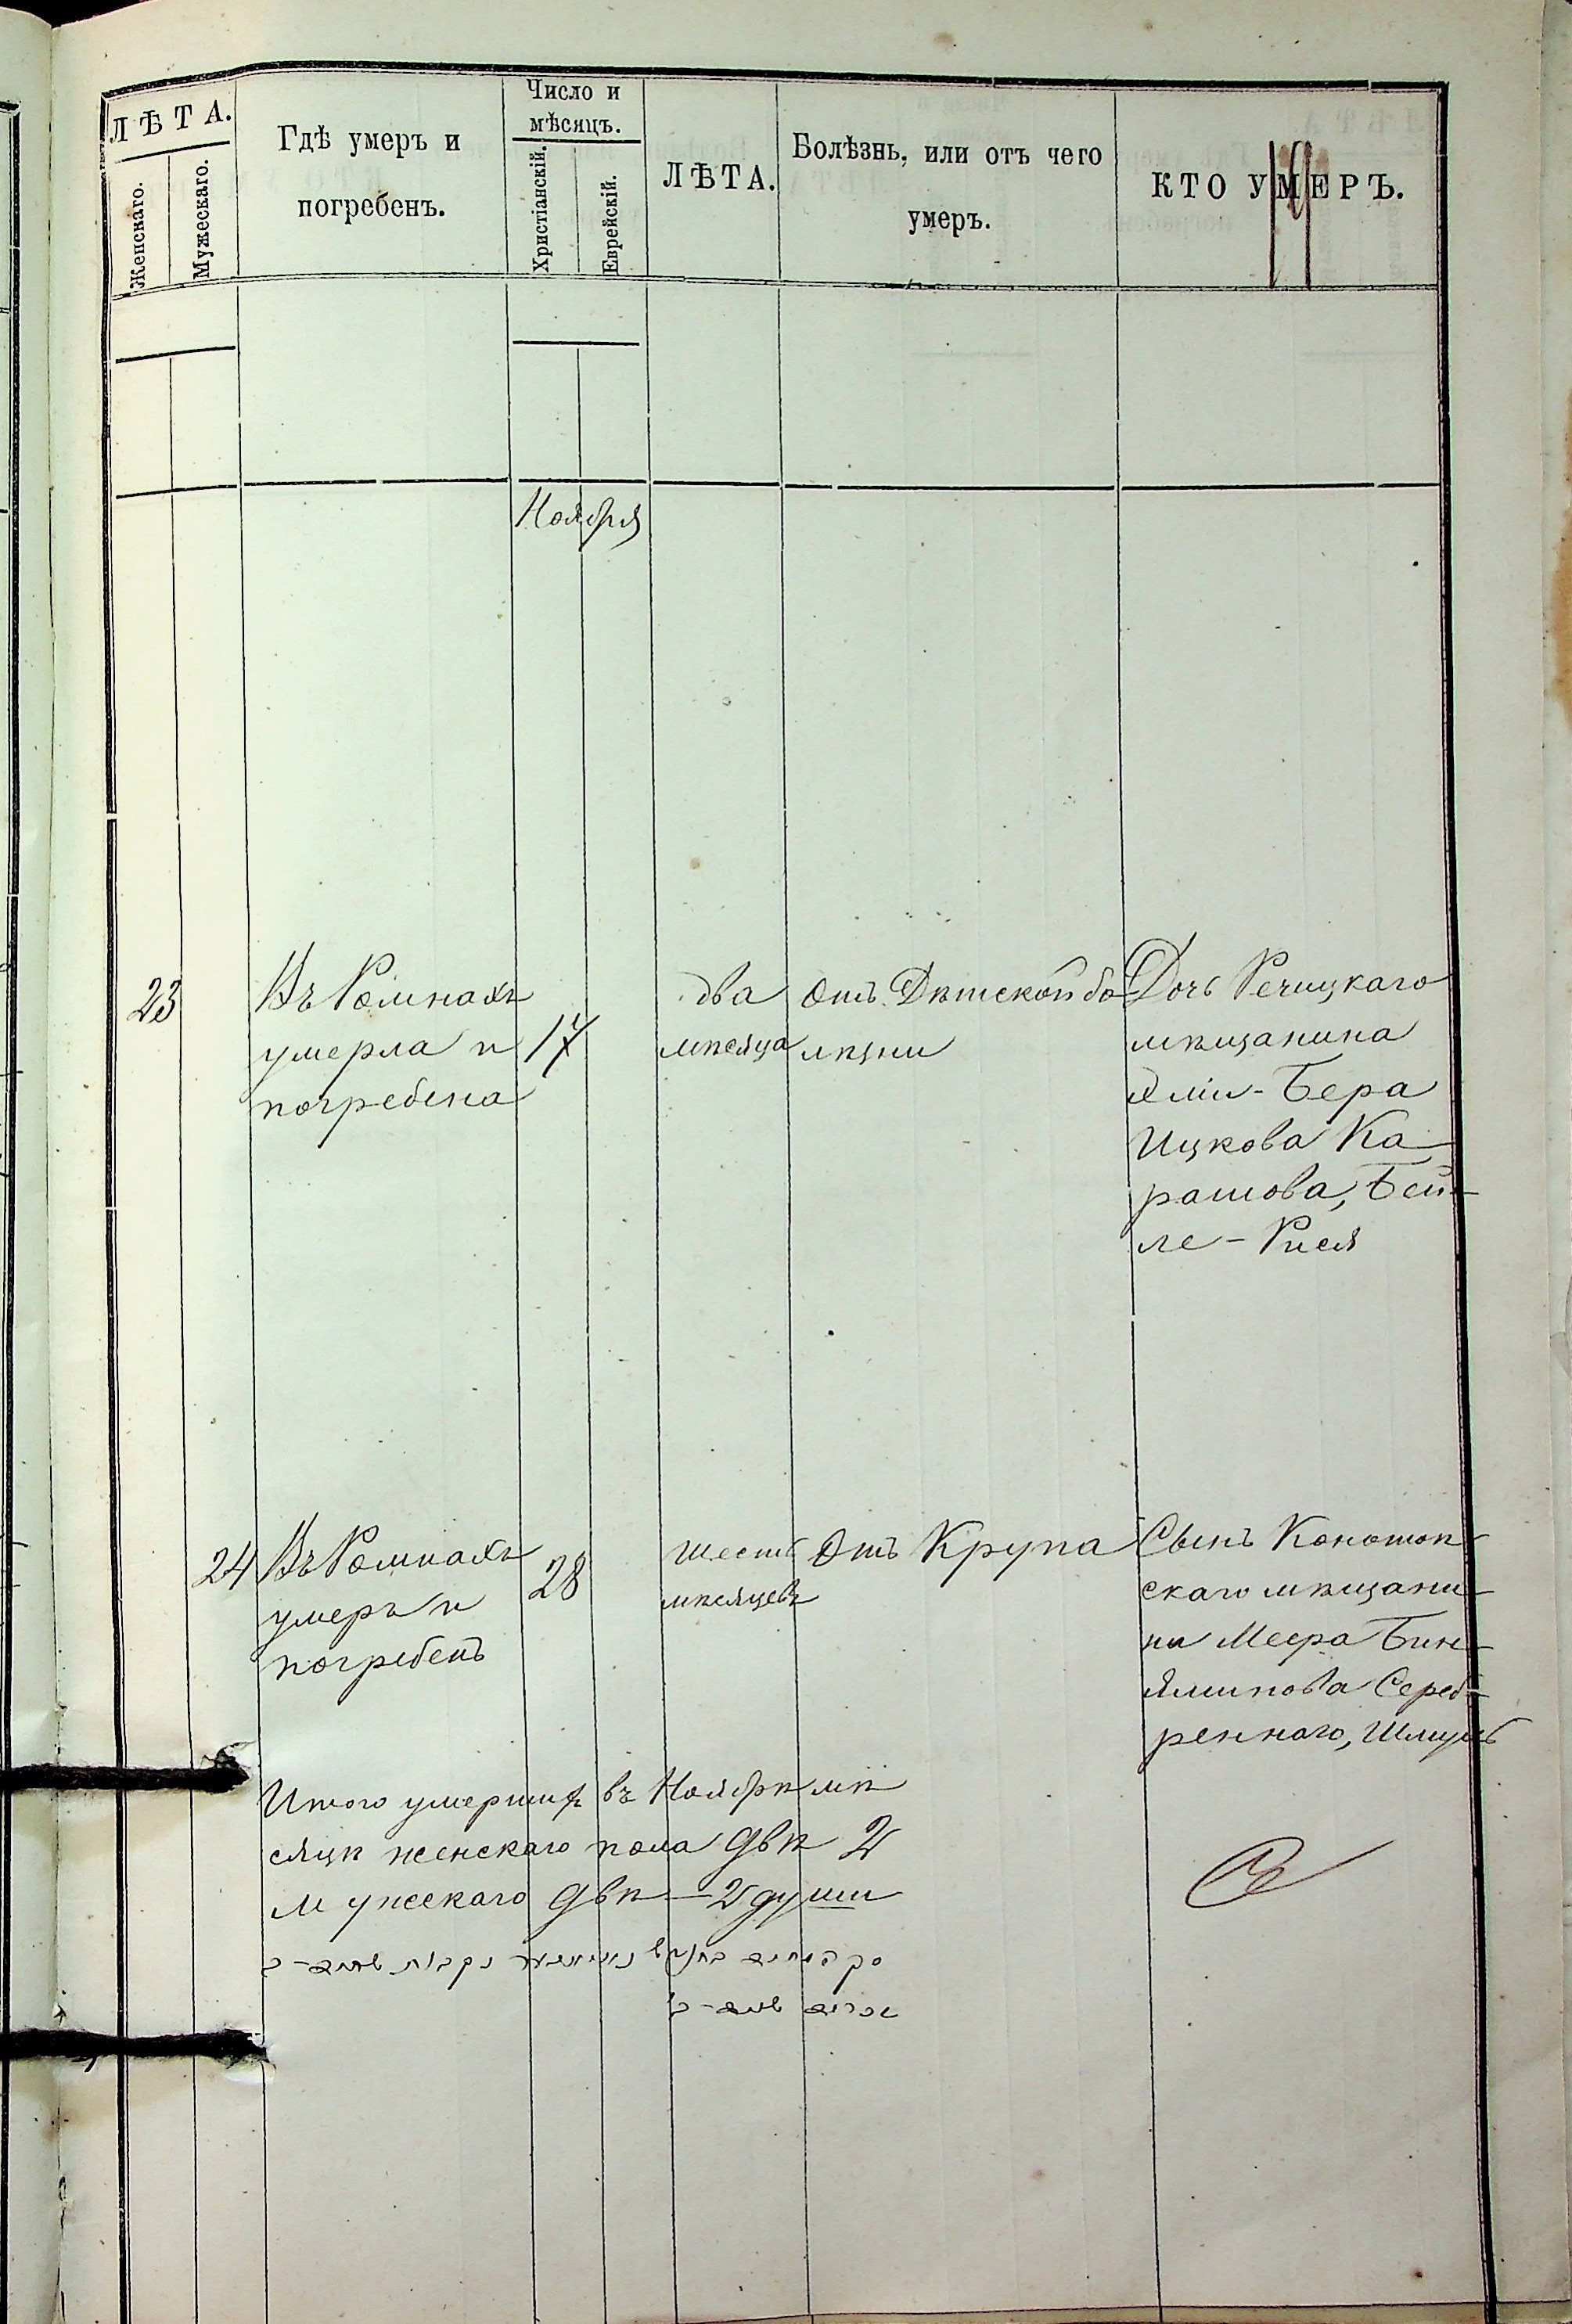 ЛѢТА.
Женскаго.
Мужескаго.
Гдѣ умеръ и
погребенъ.
Число и
мѣсяцъ.
Христіанскій.
Еврейскій.
ЛѢТА.
Болѣзнь, или отъ чего
умеръ.
КТО УМЕРЪ.
Ноября
23
Въ Ромнахъ
умерла и
погребена
17
два
мѣсяца
Отъ Дѣтской бо
лѣзни
Дочь Речицкаго
мѣщанина
Бера
Ицкова Ка
рашова, Бей-
ле-Рися
24
Въ Ромнахъ
умеръ и
погребенъ
28
шесть
мѣсяцевъ
Отъ Крупа
Сынъ Конотоп
скаго мѣщани-
на Меера Бин-
яминова Сереб-
реннаго, Шмуль
Итого умершихъ въ Ноябрѣ мѣ
сяцѣ женскаго пола двѣ 2
Мужескаго двѣ - 2 души